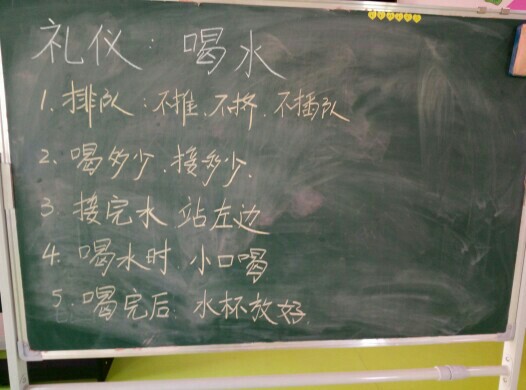 礼仪：喝水
1、排队：不推、不挤、不插队
2、喝多少、接多少、
3、接完水 站左边
4、喝水时 小口喝
5、喝完后：水杯放好。